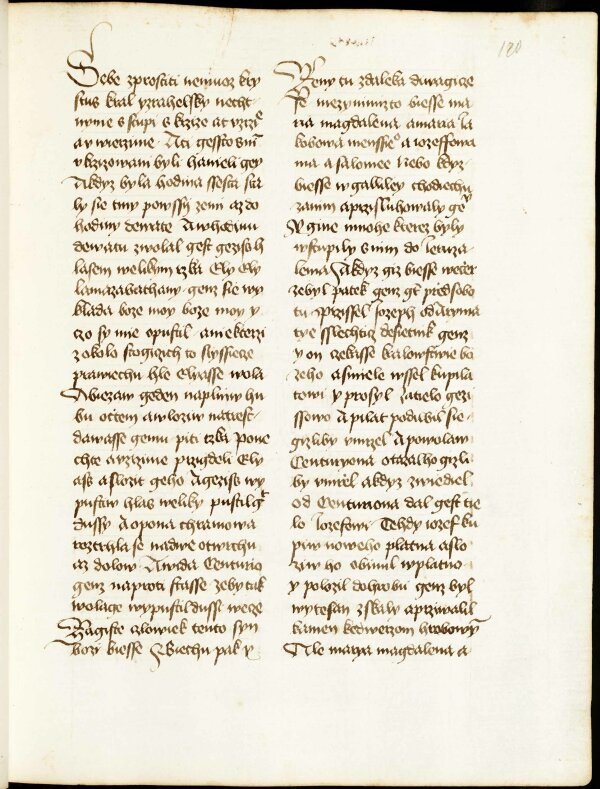 180
Sebe zprostiti nemuoz kry
stus kral yzrahelsky necht
nynie s stupi s krzize at vzrzie
a vwierzime A ti gessto s nim
vkrzizowani byli hanieli gey
A kdyz byla hodina ssesta sta
ly sie tmy powssi zemi az do
hodiny dewate A w hodinu
dewatu zwolal gest gezis h
lasem welikym rzka Ely Ely
lamazabathany genz sie wy
klada boze moy boze moy y
czo sy mie opustil a niekterzi
z okolo stogiczich to slyssiecze
prawiechu hle Elyasse wola
A biezaw geden naplniw hu
bu octem a wloziw na trest
dawasse gemu piti rzka pone
chte a vzrzime przigdeli Ely
ass a slozit geho A gezis wy
pustiw hlas weliky pustil gt
dussy A opona chramowa
roztrhla se na dwe ot wrchu
az dolow A wida Centurio
genz naproti stasse ze by tak
wolage wypustil dussi wecze
Zagiste czlowiek tento syn
bozi biesse Biechu pak y
Zeny tu zdaleka diwagicze
se mezy nimizto biesse ma
ria magdalena a maria Ja
kobowa mensseho a iozeffowa
ma a salomee Nebo kdyz
biesse w galliley chodiechu
za nim a przisluhowaly gemu
Y gine mnohe kterez byly
wstupily s nim do Jeruza
lema A kdyz giz biesse weczer
ze byl patek genz gt przed sobo
tu Przissel Jozeph od Aryma
tye sslechticz desietnik genz
y on czekasse kralowstwie bo
zeho a smiele wssel k pila
towi y prosyl za tielo gezi
ssowo A pilat podiwil sie
gizliby vmrzel A powolaw
Centuryona otazal ho gizla
by vmrel a kdyz zwiediel
od Centuriona dal gest tie
lo Jozefowi Tehdy iozef ku
piw noweho platna a slo
ziw ho obinul w platno
y polozil do hrobu genz byl
wytesan z skaly a przwalil
kamen ke dwerzom hrobowym
Ale marya magdalena a